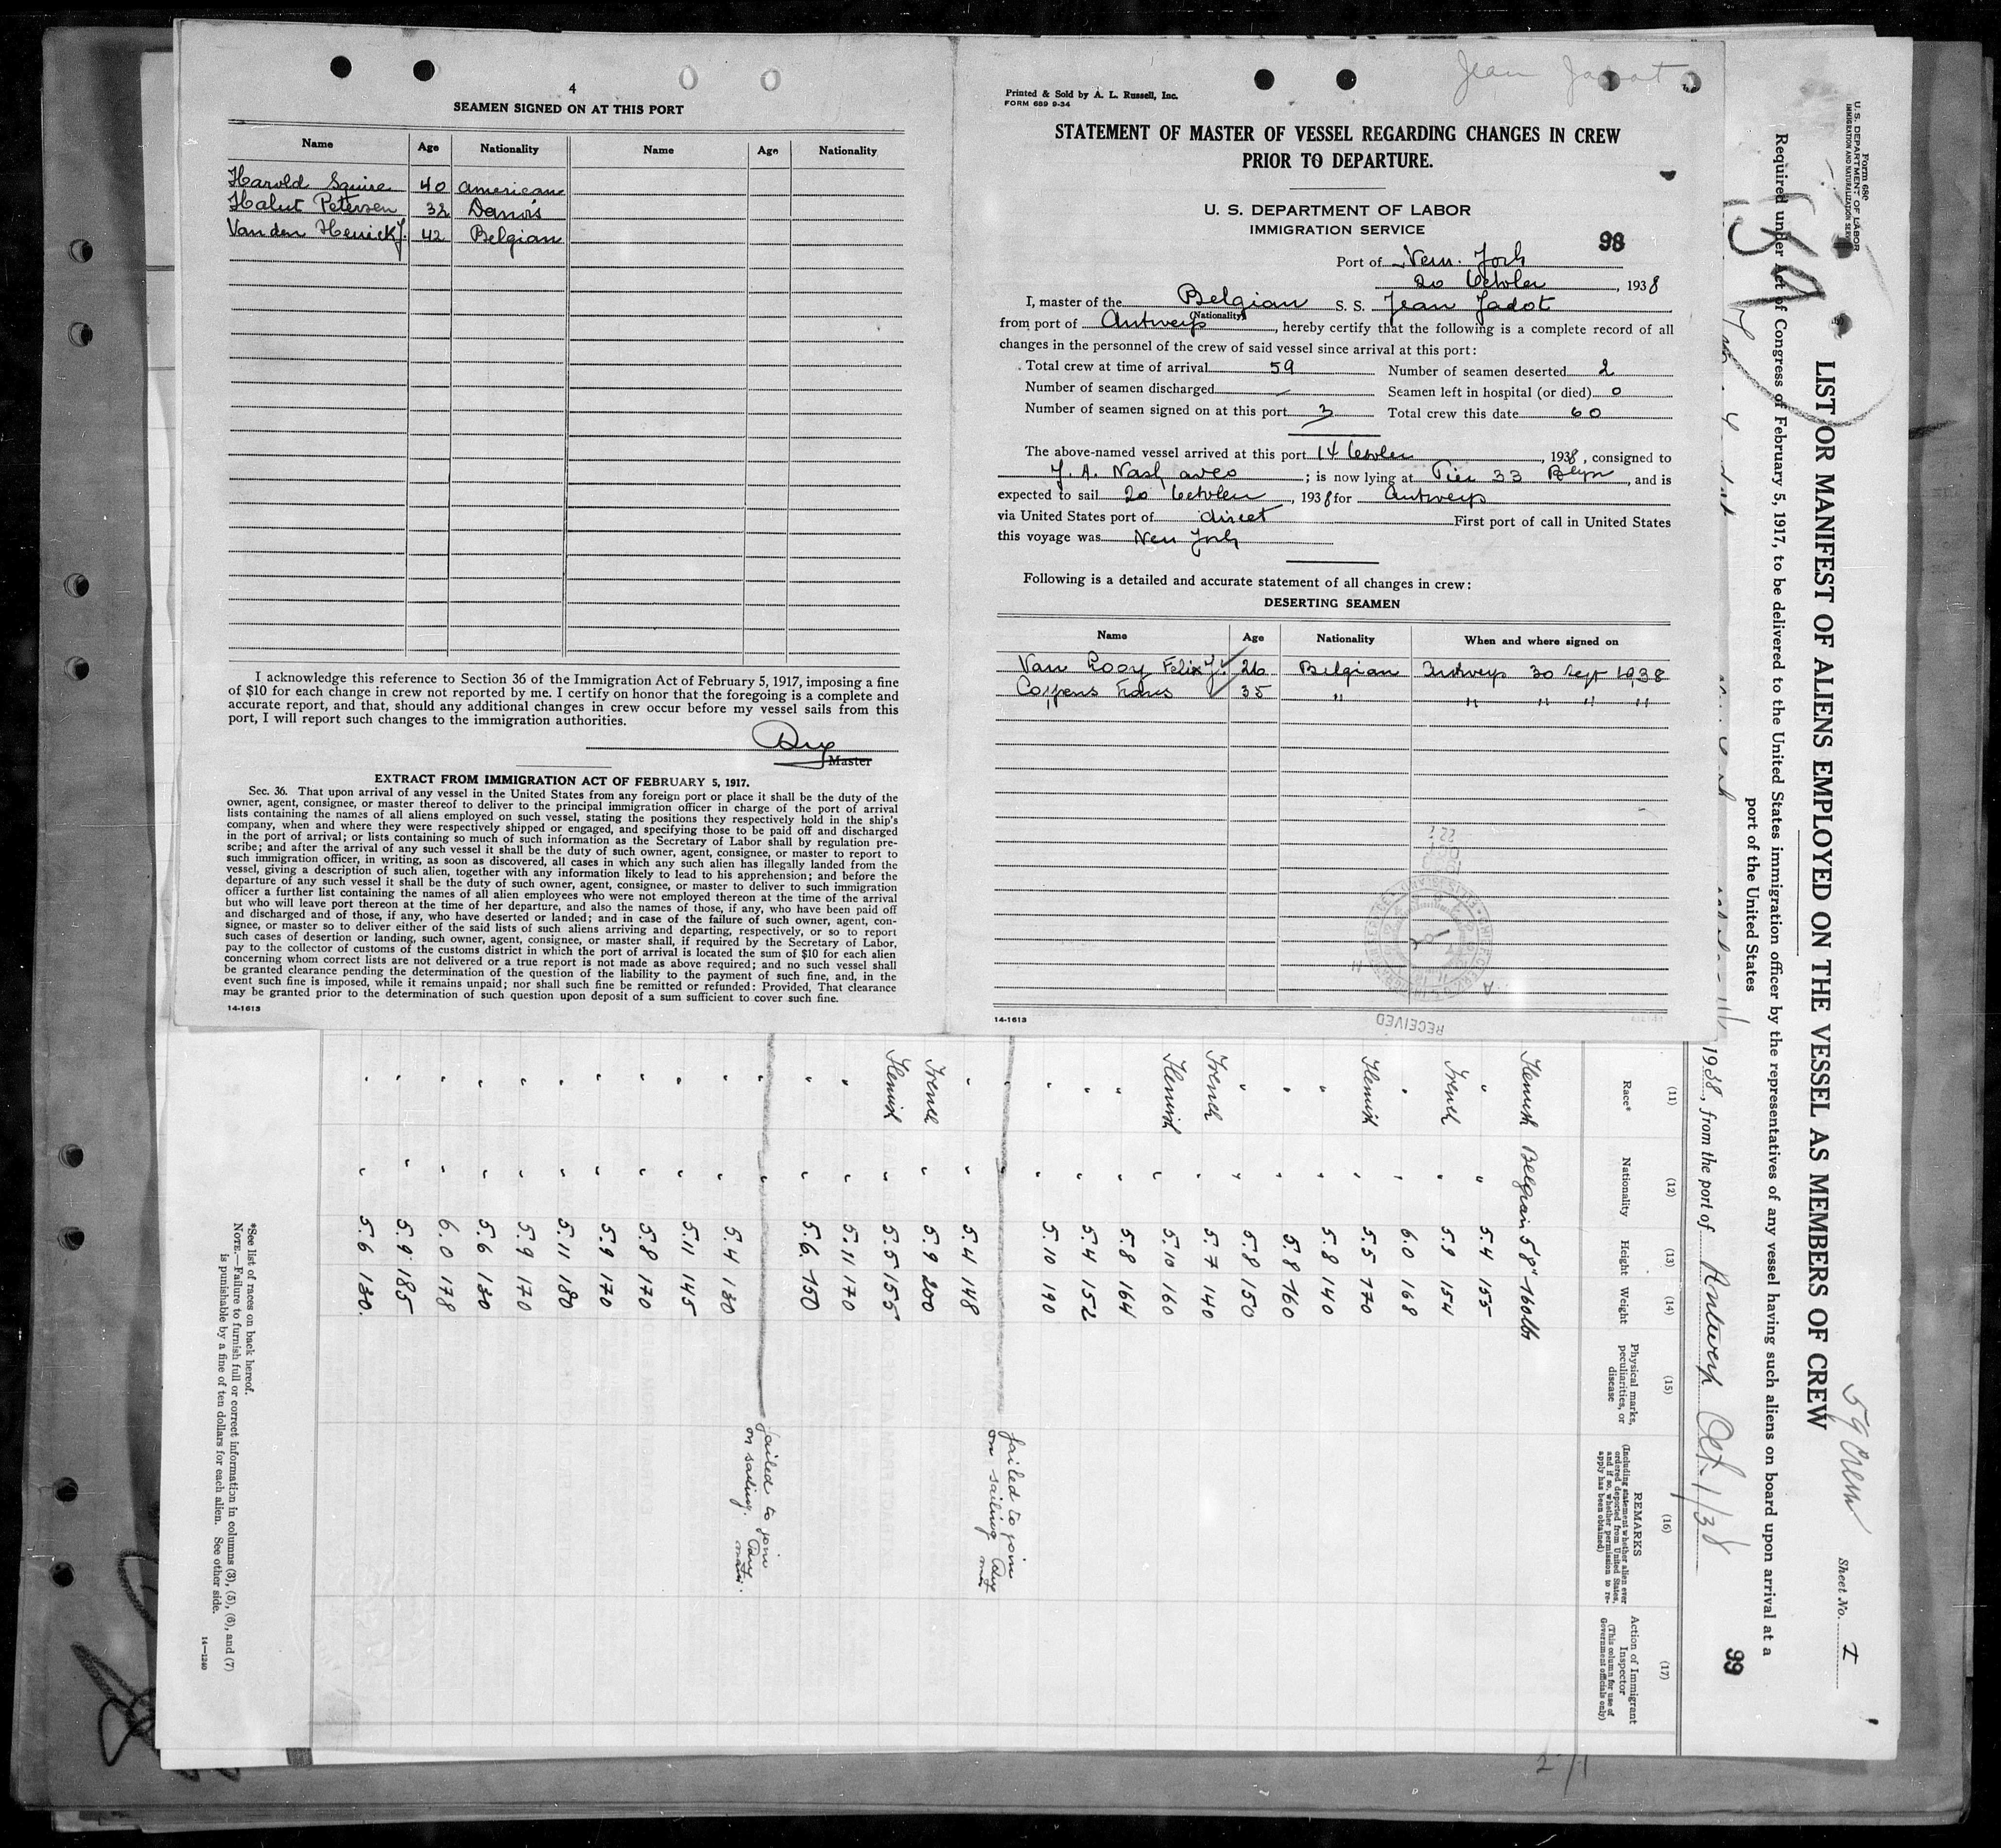 4
SEAMEN SIGNED ON AT THIS PORT
Name Age Nationality Name Age Nationality
Harold Squire 40 American
Halut Petersen 32 Danois
Van den Henick J. 42 Belgian
I acknowledge this reference to Section 36 of the Immigration Act of February 5, 1917, imposing a fine
of $10 for each change in crew not reported by me. I certify on honor that the foregoing is a complete and
accurate report, and that, should any additional changes in crew occur before my vessel sails from this
port, I will report such changes to the immigration authorities.
Master
EXTRACT FROM IMMIGRATION ACT OF FEBRUARY 5, 1917.
Sec. 36. That upon arrival of any vessel in the United States from any foreign port or place it shall be the duty of the
owner, agent, consignee, or master thereof to deliver to the principal immigration officer in charge of the port of arrival
lists containing the names of all aliens employed on such vessel, stating the positions they respectively hold in the ship's
company, when and where they were respectively shipped or engaged, and specifying those to be paid off and discharged
in the port of arrival; or lists containing so much of such information as the Secretary of Labor shall by regulation pre-
scribe; and after the arrival of any such vessel it shall be the duty of such owner, agent, consignee, or master to report to
such immigration officer, in writing, as soon as discovered, all cases in which any such alien has illegally landed from the
vessel, giving a description of such alien, together with any information likely to lead to his apprehension; and before the
departure of any such vessel it shall be the duty of such owner, agent, consignee, or master to deliver to such immigration
officer a further list containing the names of all alien employees who were not employed thereon at the time of the arrival
but who will leave port thereon at the time of her departure, and also the names of those, if any, who have been paid off
and discharged and of those, if any, who have deserted or landed; and in case of the failure of such owner, agent, con-
signee, or master so to deliver either of the said lists of such aliens arriving and departing, respectively, or so to report
such cases of desertion or landing, such owner, agent, consignee, or master shall, if required by the Secretary of Labor,
pay to the collector of customs of the customs district in which the port of arrival is located the sum of $10 for each alien
concerning whom correct lists are not delivered or a true report is not made as above required; and no such vessel shall
be granted clearance pending the determination of the question of the liability to the payment of such fine, and, in the
event such fine is imposed, while it remains unpaid; nor shall such fine be remitted or refunded: Provided, That clearance
may be granted prior to the determination of such question upon deposit of a sum sufficient to cover such fine.
14-1613
Jean Jadot
Printed & Sold by A. L. Russell, Inc.
FORM 689 9-34
STATEMENT OF MASTER OF VESSEL REGARDING CHANGES IN CREW
PRIOR TO DEPARTURE.
U. S. DEPARTMENT OF LABOR
IMMIGRATION SERVICE
98
Port of New York
20 October, 1938
I, master of the Belgian S. S. Jean Jadot
(Nationality)
from port of Antwerp, hereby certify that the following is a complete record of all
changes in the personnel of the crew of said vessel since arrival at this port:
Total crew at time of arrival 59 Number of seamen deserted 2
Number of seamen discharged — Seamen left in hospital (or died) 0
Number of seamen signed on at this port 3 Total crew this date 60
The above-named vessel arrived at this port 14 October, 1938, consigned to
J. A. Nash; is now lying at Pier 33 Bklyn, and is
expected to sail 20 October, 1938 for Antwerp
via United States port of direct First port of call in United States
this voyage was New York
Following is a detailed and accurate statement of all changes in crew:
DESERTING SEAMEN
Name Age Nationality When and where signed on
Van Rooy Felix J. 26 Belgian Antwerp 30 Sept 1938
Coppens Frans 35 " " " " "
RECEIVED
14-1613
Form 680
U. S. DEPARTMENT OF LABOR
IMMIGRATION AND NATURALIZATION SERVICE
59 Crew
Sheet No. I
LIST OR MANIFEST OF ALIENS EMPLOYED ON THE VESSEL AS MEMBERS OF CREW
Required under Act of Congress of February 5, 1917, to be delivered to the United States immigration officer by the representatives of any vessel having such aliens on board upon arrival at a
port of the United States
99
1938, from the port of Antwerp Oct 1/38
(11) (12) (13) (14) (15) (16) (17)
Race* Nationality Height Weight Physical marks, peculiarities, or disease
REMARKS (Including statement whether alien ever ordered deported from United States, and if so, whether permission to re-apply has been obtained)
Action of Immigrant Inspector (This column for use of Government officials only)
Flemish Belgian 5'8" 160lbs
" " 5.4 155
French " 5.9 154
" " 6.0 168
Flemish " 5.5 170
" " 5.8 140
" " 5.8 160
" " 5.8 150
French " 5.7 140
Flemish " 5.10 160
" " 5.8 164
" " 5.4 152
" " 5.10 190
" " failed to join on sailing
" " 5.41 148
French " 5.9 200
Flemish " 5.5 155
" " 5.11 170
" " 5.6 150
" " failed to join on sailing.
" " 5.4 130
" " 5.11 145
" " 5.8 170
" " 5.9 170
" " 5.11 180
" " 5.9 170
" " 5.6 130
" " 6.0 178
" " 5.9 185
" " 5.6 130.
*See list of races on back hereof.
NOTE.—Failure to furnish full or correct information in columns (3), (5), (6), and (7)
is punishable by a fine of ten dollars for each alien. See other side.
14—1240
2/1